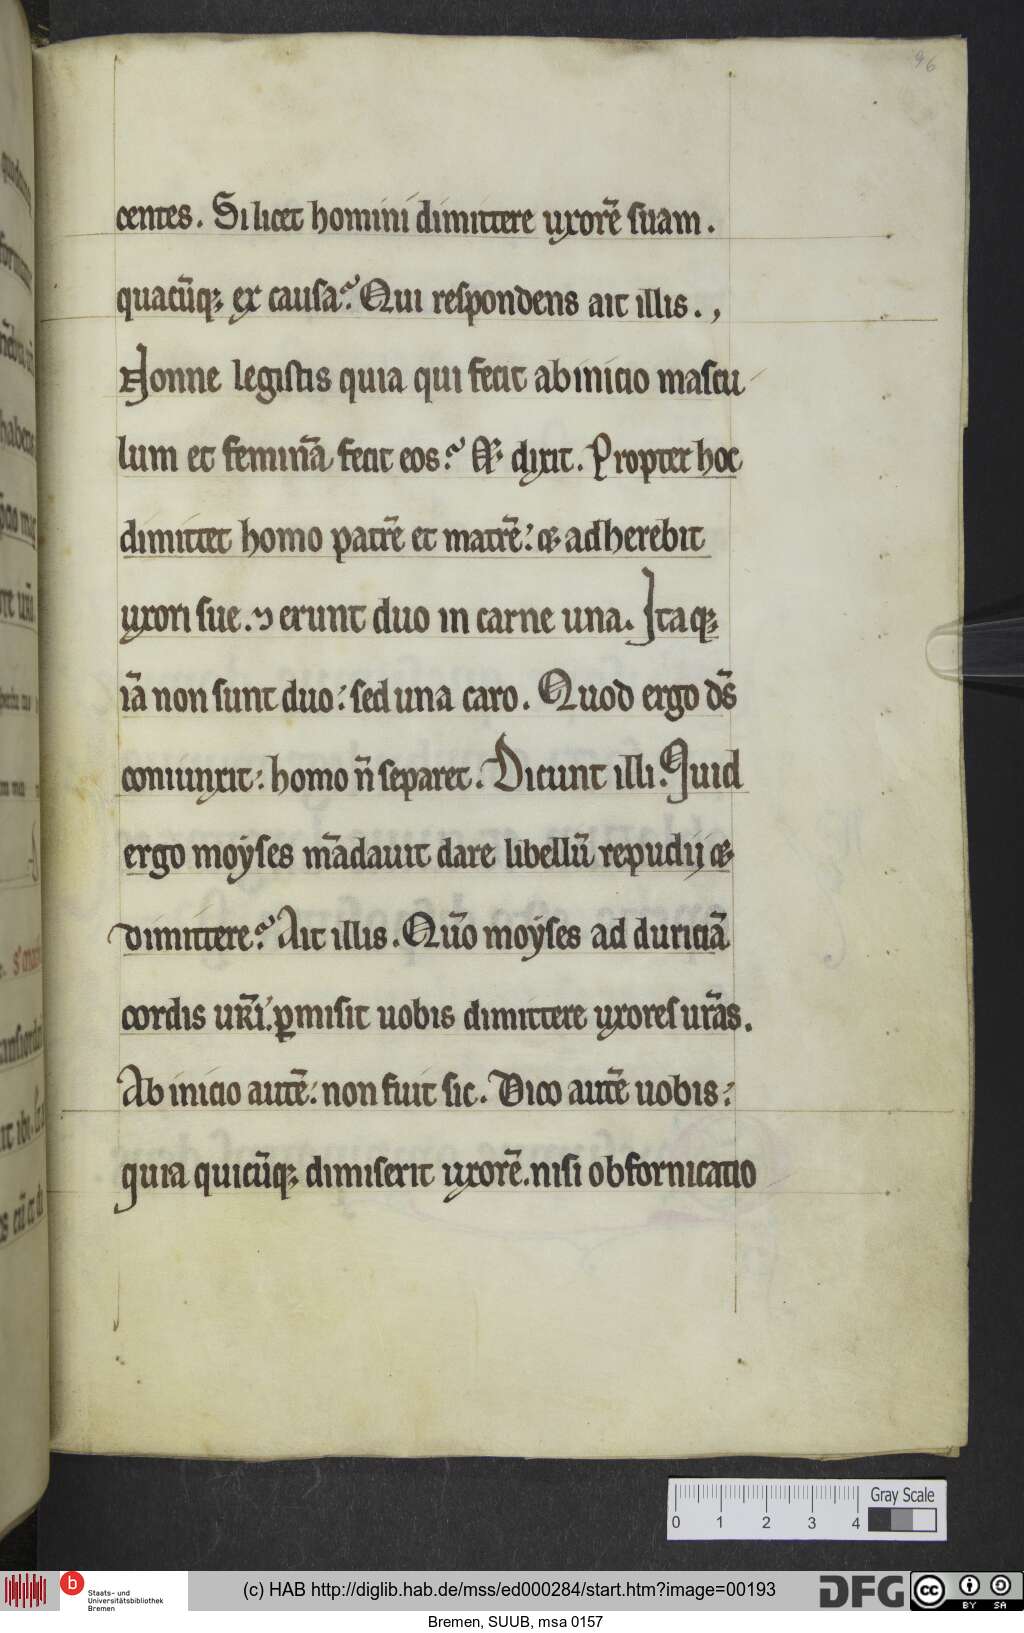 96
centes. Si licet homini dimittere uxorē suam.
quacūq; ex causa? Qui respondens ait illis.,
Nonne legistis quia qui fecit ab inicio mascu
lum et feminā fecit eos? &  dixit. Propter hoc
dimittet homo patrē et matrē: & adherebit
uxori sue. ⁊ erunt duo in carne una. Itaq;
iā non sunt duo: sed una caro. Quod ergo dꝰs
coniunxit: homo n̄ separet. Dicunt illi. Quid
ergo moyses mādauit dare libellū repudij &
dimittere? Ait illis. Quō moyses ad duriciā
cordis uR̄i: ꝑmisit uobis dimittere uxores urās.
Ab inicio autē: non fuit sic. Dico autē uobis:
quia quicūq; dimiserit uxorē. nisi ob fornicatio
0 1 2 3 4 Gray Scale
b Staats- und
Universitätsbibliothek
Bremen
(c) HAB http://diglib.hab.de/mss/ed000284/start.htm?image=00193
DFG
cc BY SA
Bremen, SUUB, msa 0157